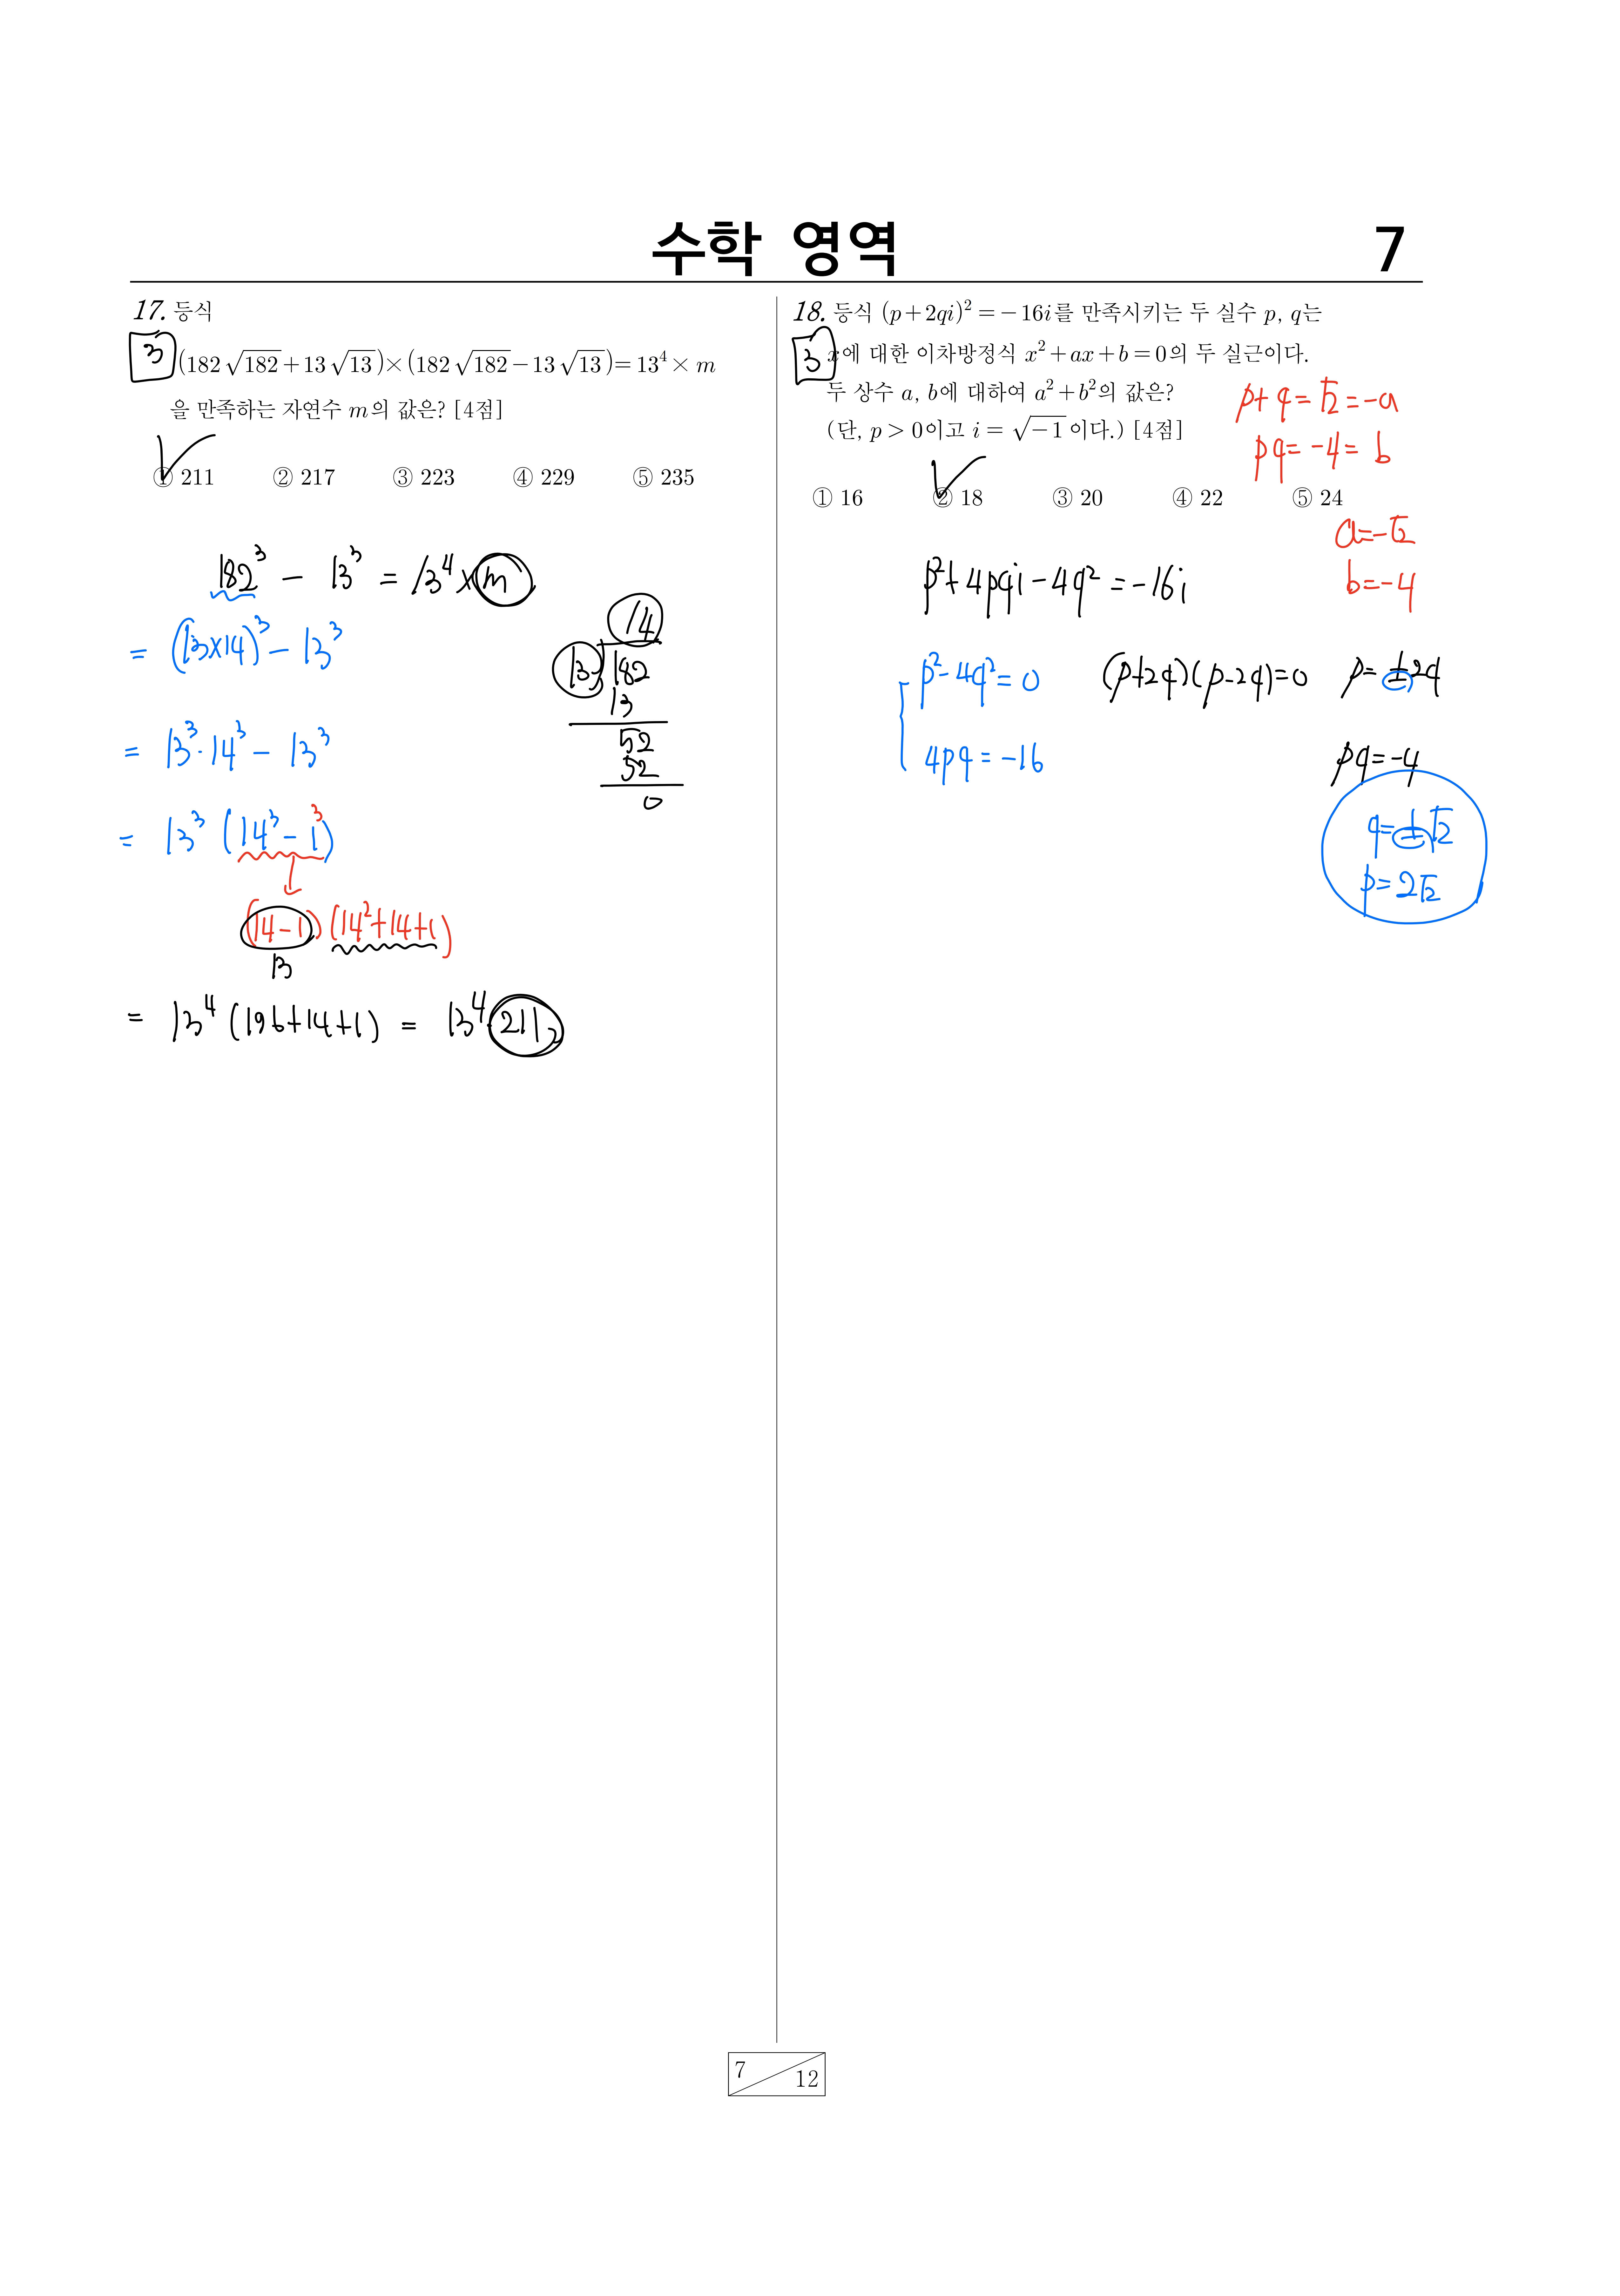 수학 영역
7
17. 등식
3
(182√182+13√13)×(182√182−13√13)=13⁴×m
을 만족하는 자연수 m의 값은? [4점]
① 211 ② 217 ③ 223 ④ 229 ⑤ 235
182³ − 13³ = 13⁴×m
= (13×14)³ − 13³
14
13)182
13
52
52
0
= 13³·14³ − 13³
= 13³(14³−1³)
(14−1)(14²+14+1)
13
= 13⁴(196+14+1) = 13⁴·211
18. 등식 (p+2qi)²=−16i를 만족시키는 두 실수 p, q는
3
x에 대한 이차방정식 x²+ax+b=0의 두 실근이다.
두 상수 a, b에 대하여 a²+b²의 값은?
(단, p>0이고 i=√−1이다.) [4점]
① 16 ② 18 ③ 20 ④ 22 ⑤ 24
p+q=√2=−a
pq=−4=b
a=−√2
b=−4
p²+4pqi−4q²=−16i
p²−4q²=0 (p+2q)(p−2q)=0 p=±2q
4pq=−16 pq=−4
q=±√2
p=2√2
7
12